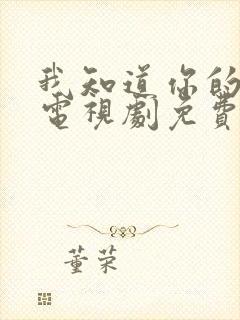 我知道你的
電視劇免費
董荣